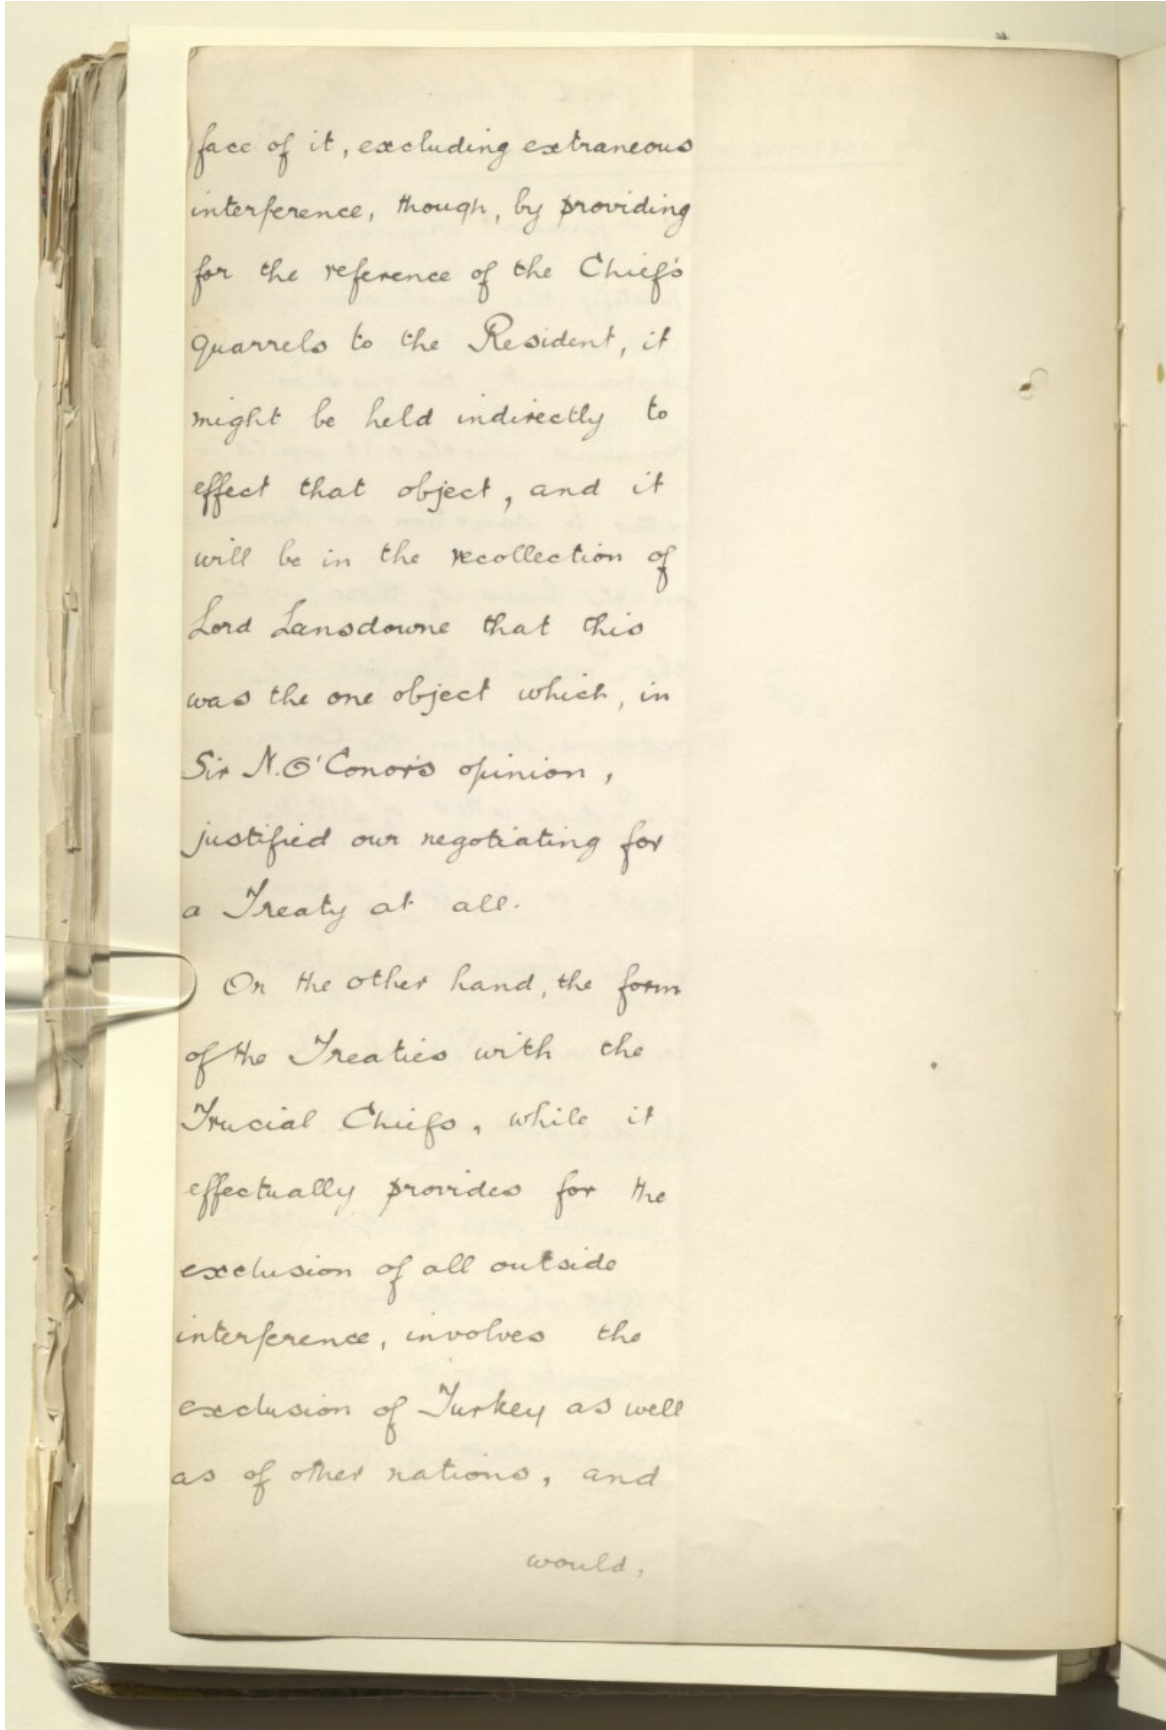 face of it, excluding extraneous
interference, though, by providing
for the reference of the Chief's
quarrels to the Resident, it
might be held indirectly to
effect that object, and it
will be in the recollection of
Lord Lansdowne that this
was the one object which, in
Sir N. O'Conor's opinion,
justified our negotiating for
a Treaty at all.
On the other hand, the form
of the Treaties with the
Trucial Chiefs, while it
effectually provides for the
exclusion of all outside
interference, involves the
exclusion of Turkey as well
as of other nations, and
would,